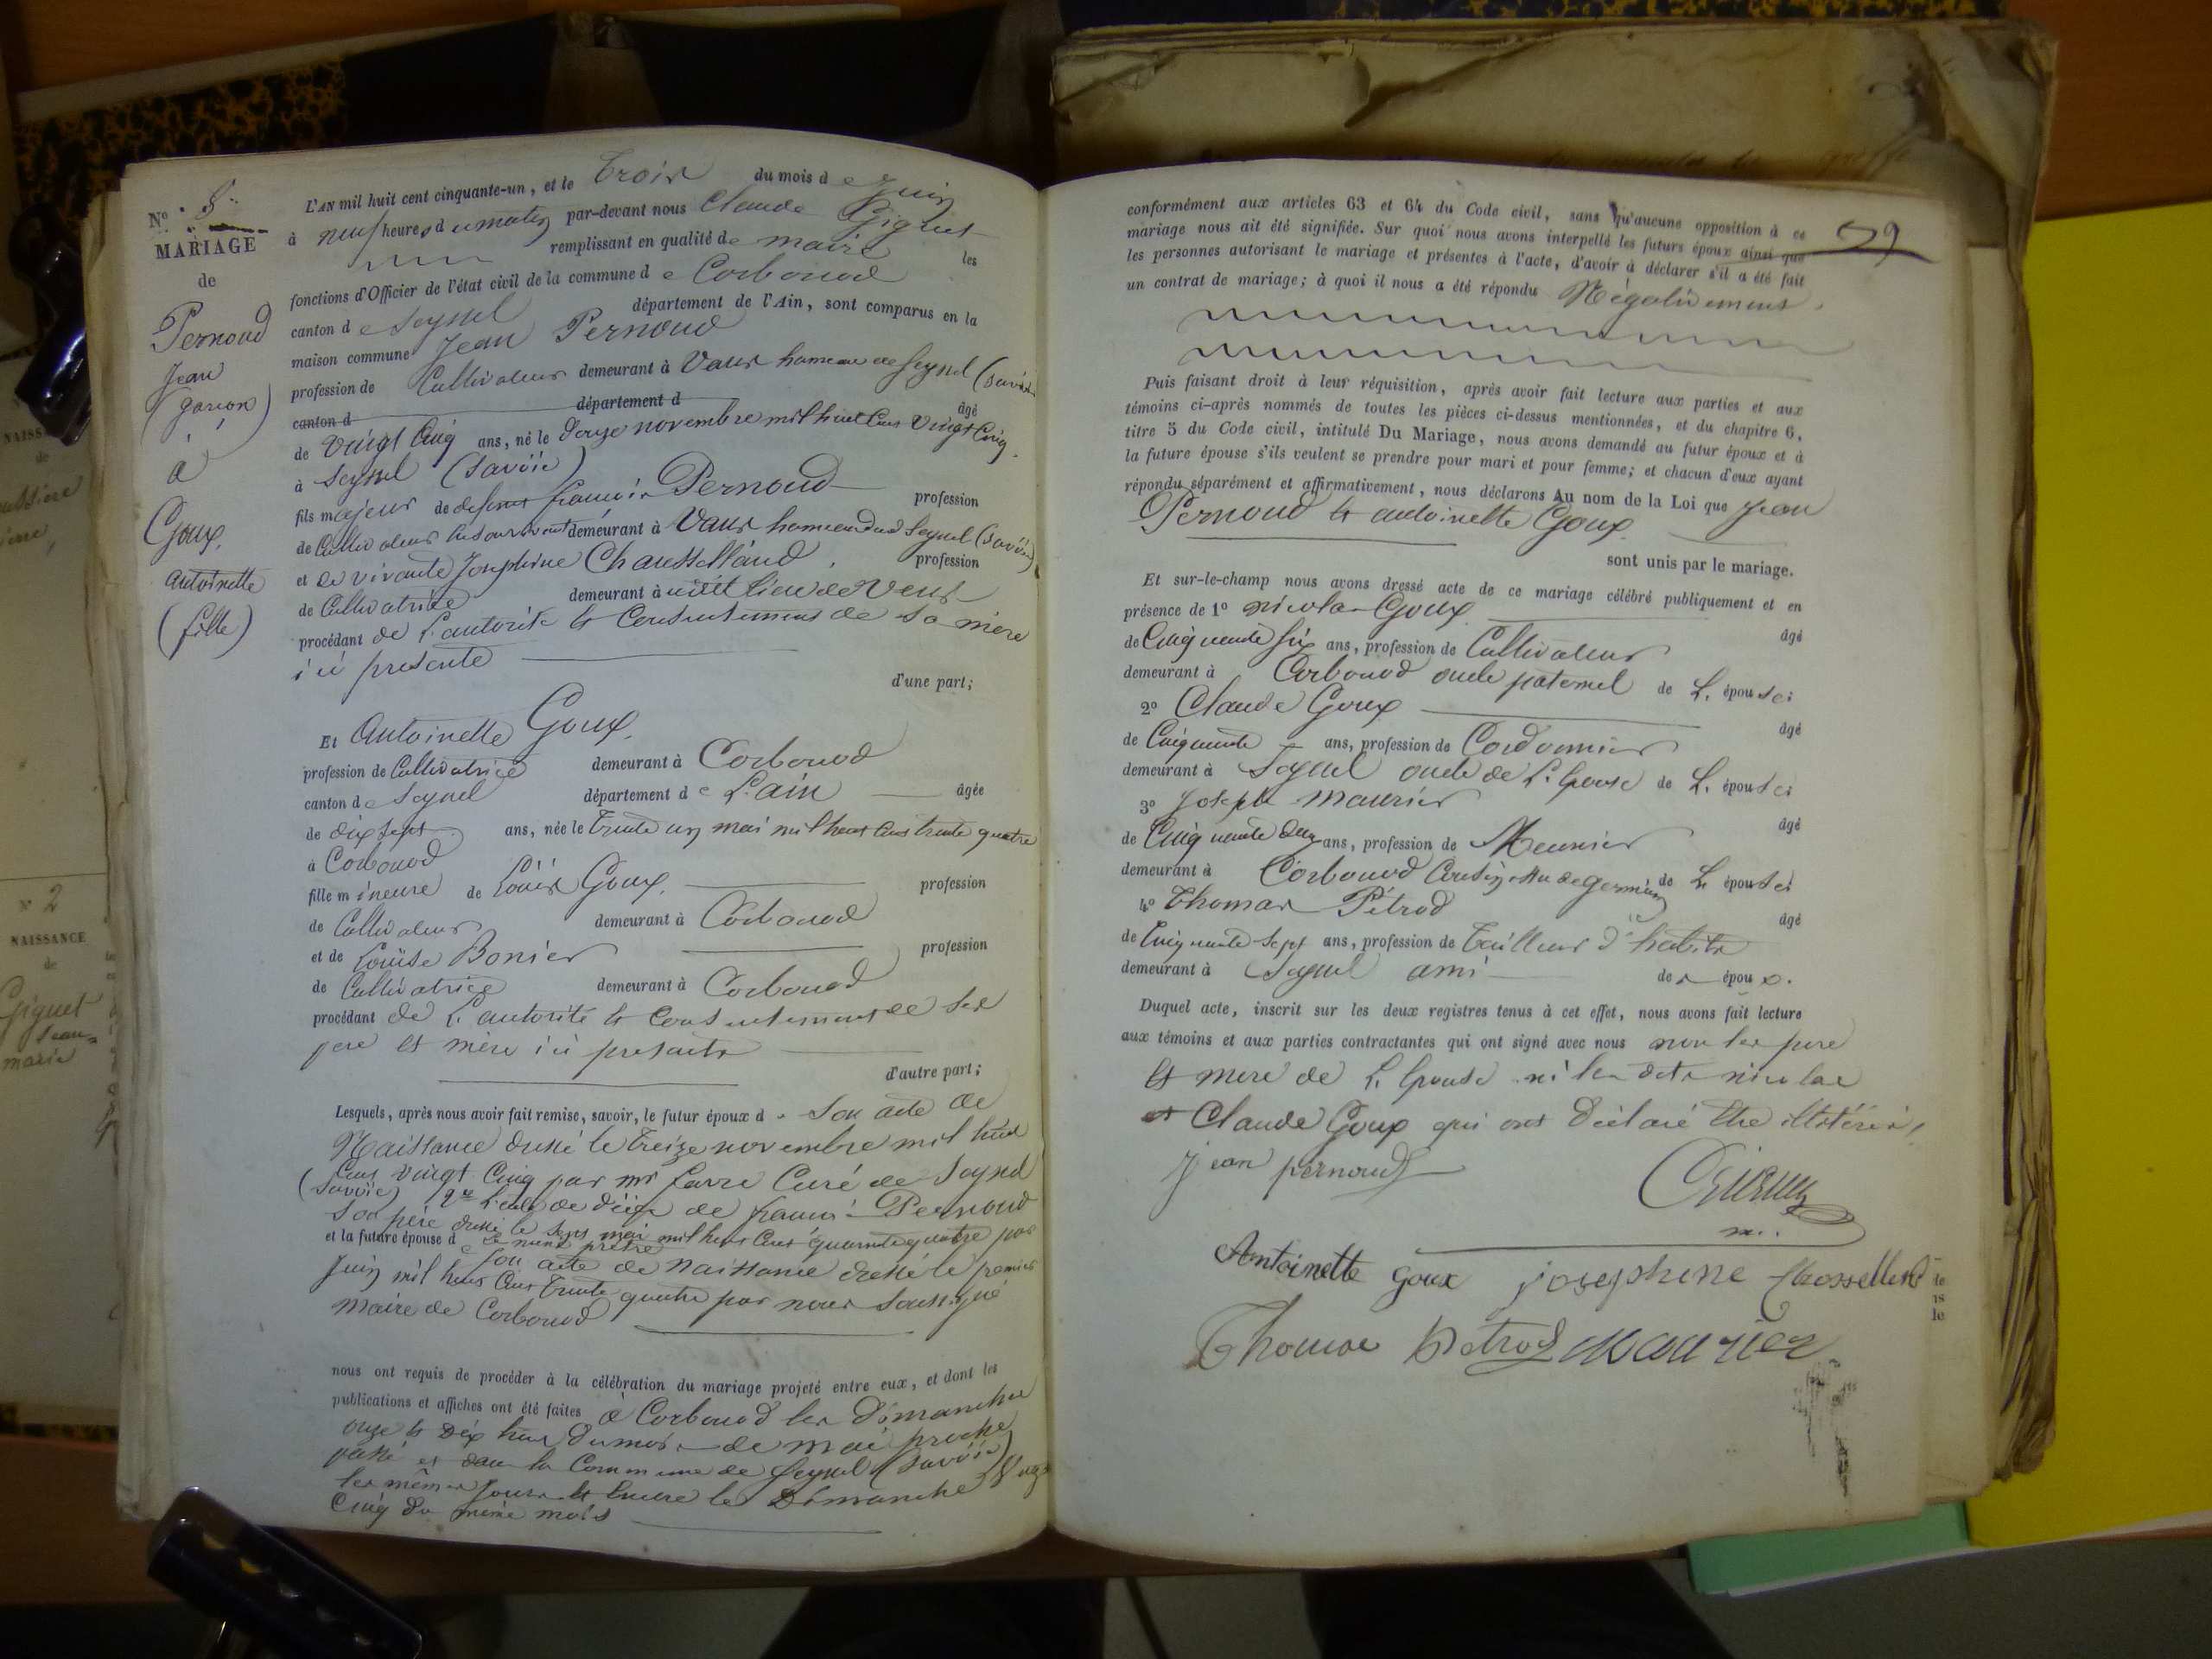 N° 8
MARIAGE
de
Pernoud
Jean
(garçon)
à
Goux
Antoinette
(fille)
L'AN mil huit cent cinquante-un, et le Trois du mois de Juin
à neuf heures du matin par-devant nous Claude Giguet
remplissant en qualité de maire les
fonctions d'Officier de l'état civil de la commune de Corbonod
canton de Seyssel département de l'Ain, sont comparus en la
maison commune Jean Pernoud
profession de Cultivateur demeurant à Vaux hameau de Seyssel (Savoie
canton d département d âgé
de Vingt Cinq ans, né le Douze novembre mil huit Cent Vingt Cinq
à Seyssel (Savoie)
fils majeur de defunt françois Pernoud profession
de Cultivateur demeurant à Vaux hameau dud Seyssel (Savoie)
et de vivante Josephine Chausselland profession
de Cultivatrice demeurant à lieu de Veux
procédant de L'autorité et Consentement de Sa mère
ici presente
d'une part;
Et Antoinette Goux
profession de Cultivatrice demeurant à Corbonod
canton de Seyssel département de L'ain âgée
de dix sept ans, née le trente un mai mil huit Cent trente quatre
à Corbonod
fille mineure de Louis Goux profession
de Cultivateur demeurant à Corbonod
et de Louise Bonier profession
de Cultivatrice demeurant à Corbonod
procédant de L'autorité et Consentement de Ses
pere et mère ici presents
d'autre part;
Lesquels, après nous avoir fait remise, savoir, le futur époux d Son acte de
Naissance dressé le treize novembre mil huit
Cent vingt Cinq par mr favre Curé de Seyssel
(Savoie) 2° L'acte de décès de françois Pernoud
Son père dressé le Sept mai mil huit Cent quarante quatre par
le même prêtre
et la future épouse de Son acte de Naissance dressé le premier
Juin mil huit Cent trente quatre par nous Soussigné
Maire de Corbonod
nous ont requis de procéder à la célébration du mariage projeté entre eux, et dont les
publications et affiches ont été faites à Corbonod les Dimanche
onze et Dix huit du mois de mai proche
passé et dans la Commune de Seyssel (Savoie)
les mêmes Jours et encore le Dimanche Vingt
Cinq du même mois
conformément aux articles 63 et 64 du Code civil, sans qu'aucune opposition à ce
mariage nous ait été signifiée. Sur quoi nous avons interpellé les futurs époux ainsi que
les personnes autorisant le mariage et présentes à l'acte, d'avoir à déclarer s'il a été fait
un contrat de mariage; à quoi il nous a été répondu Négativement.
Puis faisant droit à leur réquisition, après avoir fait lecture aux parties et aux
témoins ci-après nommés de toutes les pièces ci-dessus mentionnées, et du chapitre 6,
titre 5 du Code civil, intitulé Du Mariage, nous avons demandé au futur époux et à
la future épouse s'ils veulent se prendre pour mari et pour femme; et chacun d'eux ayant
répondu séparément et affirmativement, nous déclarons Au nom de la Loi que Jean
Pernoud et antoinette Goux
sont unis par le mariage.
Et sur-le-champ nous avons dressé acte de ce mariage célébré publiquement et en
présence de 1° nicolas Goux âgé
de Cinquante Six ans, profession de Cultivateur
demeurant à Corbonod oncle paternel de L'épouse;
2° Claude Goux âgé
de Cinquante ans, profession de Cordonnier
demeurant à Seyssel oncle de L'épouse de L'épouse;
3° Joseph Maurier âgé
de Cinquante deux ans, profession de Meunier
demeurant à Corbonod Cousin issu de germain de L'épouse;
4° Thomas Pétrod âgé
de Cinquante Sept ans, profession de Tailleur d'habits
demeurant à Seyssel ami des époux.
Duquel acte, inscrit sur les deux registres tenus à cet effet, nous avons fait lecture
aux témoins et aux parties contractantes qui ont signé avec nous non les pere
et mere de L'épouse ni les dits nicolas
et Claude Goux qui ont Déclaré être illétérés
Jean pernoud
Antoinette goux josephine Chossellent
Thomas Pétrod Maurier
N° 2
NAISSANCE
de
Giguet
Jean-
marie